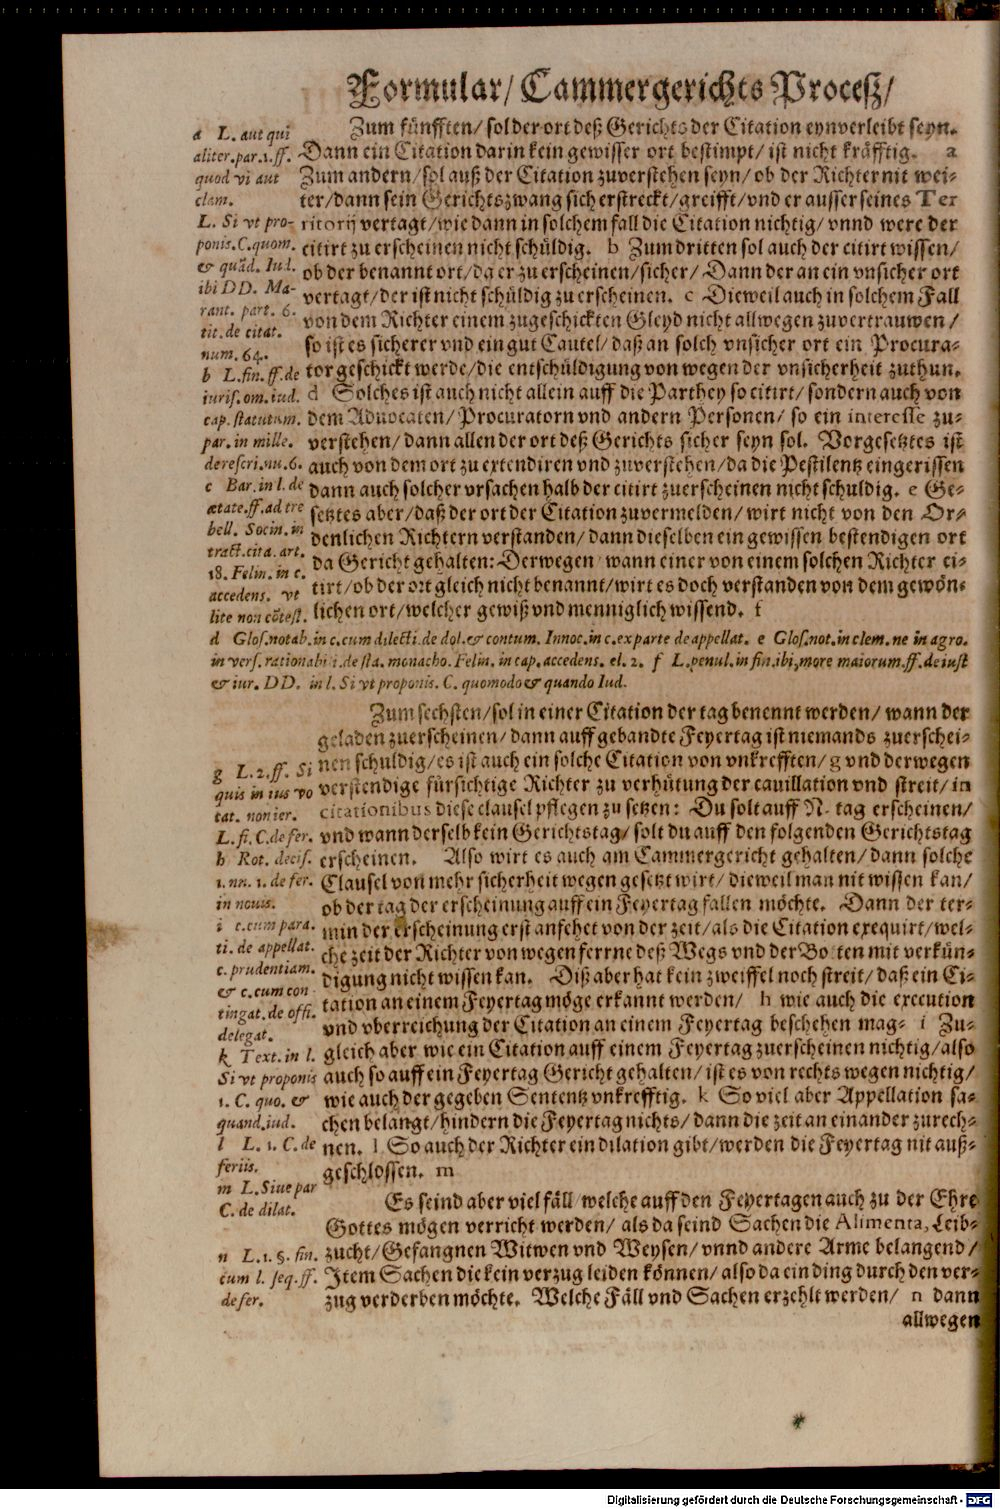 Formular/ Cammergerichts Proceß/
Zum fünfften/ sol der ort deß Gerichts der Citation eynverleibt seyn.
Dann ein Citation darin kein gewisser ort bestimpt/ ist nicht kräfftig. a
Zum andern/ sol auß der Citation zuverstehen seyn/ ob der Richter nit wei-
ter/ dann sein Gerichtszwang sich erstreckt/ greifft/ vnd er ausser seines Ter
ritorij vertagt/ wie dann in solchem fall die Citation nichtig/ vnnd were der
citirt zu erscheinen nicht schüldig. b Zum dritten sol auch der citirt wissen/
ob der benannt ort/ da er zu erscheinen/ sicher/ Dann der an ein vnsicher ort
vertagt/ der ist nicht schüldig zu erscheinen. c Dieweil auch in solchem Fall
von dem Richter einem zugeschickten Gleyd nicht allwegen zuvertrauwen/
so ist es sicherer vnd ein gut Cautel/ daß an solch vnsicher ort ein Procura-
tor geschickt werde/ die entschüldigung von wegen der vnsicherheit zuthun.
d Solches ist auch nicht allein auff die Parthey so citirt/ sondern auch von
dem Advocaten/ Procuratorn vnd andern Personen/ so ein interesse zu-
verstehen/ dann allen der ort deß Gerichts sicher seyn sol. Vorgesetztes ist
auch von dem ort zu extendiren vnd zuverstehen/ da die Pestilentz eingerissen
dann auch solcher vrsachen halb der citirt zuerscheinen nicht schuldig. e Ge-
setztes aber/ daß der ort der Citation zuvermelden/ wirt nicht von den Or-
denlichen Richtern verstanden/ dann dieselben ein gewissen bestendigen ort
da Gericht gehalten: Derwegen wann einer von einem solchen Richter ci-
tirt/ ob der ort gleich nicht benannt/ wirt es doch verstanden von dem gewön-
lichen ort/ welcher gewiß vnd menniglich wissend. f
a L. aut qui
aliter. par. 1. ff.
quod vi aut
clam.
L. Si vt pro-
ponis. C. quom.
& quãd. Iud.
ibi DD. Ma-
rant. part. 6.
tit. de citat.
num. 64.
b L. fin. ff. de
iuris. om. iud.
cap. statutum.
par. in mille.
de rescri. nu. 6.
c Bar. in l. de
ætate. ff. ad tre
bell. Socin. in
tract. cita. art.
18. Felin. in c.
accedens. vt
lite non cõtest.
d Glos. notab. in c. cum dilecti. de dol. & contum. Innoc. in c. ex parte de appellat. e Glos. not. in clem. ne in agro.
in vers. rationabi i. de sta. monacho. Felin. in cap. accedens. el. 2. f L. penul. in fin. ibi, more maiorum. ff. de iust
& iur. DD. in l. Si vt proponis. C. quomodo & quando Iud.
Zum sechsten/ sol in einer Citation der tag benennt werden/ wann der
geladen zuerscheinen/ dann auff gebandte Feyertag ist niemands zuerschei-
nen schuldig/ es ist auch ein solche Citation von vnkrefften/ g vnd derwegen
verstendige fürsichtige Richter zu verhütung der cavillation vnd streit/ in
citationibus diese clausel pflegen zu setzen: Du solt auff N. tag erscheinen/
vnd wann derselb kein Gerichtstag/ solt du auff den folgenden Gerichtstag
erscheinen. Also wirt es auch am Cammergericht gehalten/ dann solche
Clausel von mehr sicherheit wegen gesetzt wirt/ dieweil man nit wissen kan/
ob der tag der erscheinung auff ein Feyertag fallen möchte. Dann der ter-
min der erscheinung erst anfehet von der zeit/ als die Citation exequirt/ wel-
che zeit der Richter von wegen ferrne deß Wegs vnd der Botten mit verkün-
digung nicht wissen kan. Diß aber hat kein zweiffel noch streit/ daß ein Ci-
tation an einem Feyertag möge erkannt werden/ h wie auch die execution
vnd vberreichung der Citation an einem Feyertag beschehen mag. i Zu-
gleich aber wie ein Citation auff einem Feyertag zuerscheinen nichtig/ also
auch so auff ein Feyertag Gericht gehalten/ ist es von rechts wegen nichtig/
wie auch der gegeben Sententz vnkrefftig. k So viel aber Appellation sa-
chen belangt/ hindern die Feyertag nichts/ dann die zeit an einander zurech-
nen. l So auch der Richter ein dilation gibt/ werden die Feyertag nit auß-
geschlossen. m
g L. 2. ff. Si
quis in ius vo
cat. non ier.
L. fi. C. de fer.
h Rot. decis.
1. nu. 1. de fer.
in nouis.
i c. cum para.
ti. de appellat.
c. prudentiam.
& c. cum con
tingat. de offi.
delegat.
k Text. in l.
Si vt proponis
1. C. quo. &
quand. iud.
l L. 1. C. de
feriis.
m L. Siue par
C. de dilat.
Es seind aber viel fäll/ welche auff den Feyertagen auch zu der Ehre
Gottes mögen verricht werden/ als da seind Sachen die Alimenta, Leib-
zucht/ Gefangnen Witwen vnd Weysen/ vnnd andere Arme belangend/
Item Sachen die kein verzug leiden können/ also da ein ding durch den ver-
zug verderben möchte. Welche Fäll vnd Sachen erzehlt werden/ n dann
n L. 1. §. fin.
cum l. seq. ff.
de fer.
allwegen
Digitalisierung gefördert durch die Deutsche Forschungsgemeinschaft - DFG